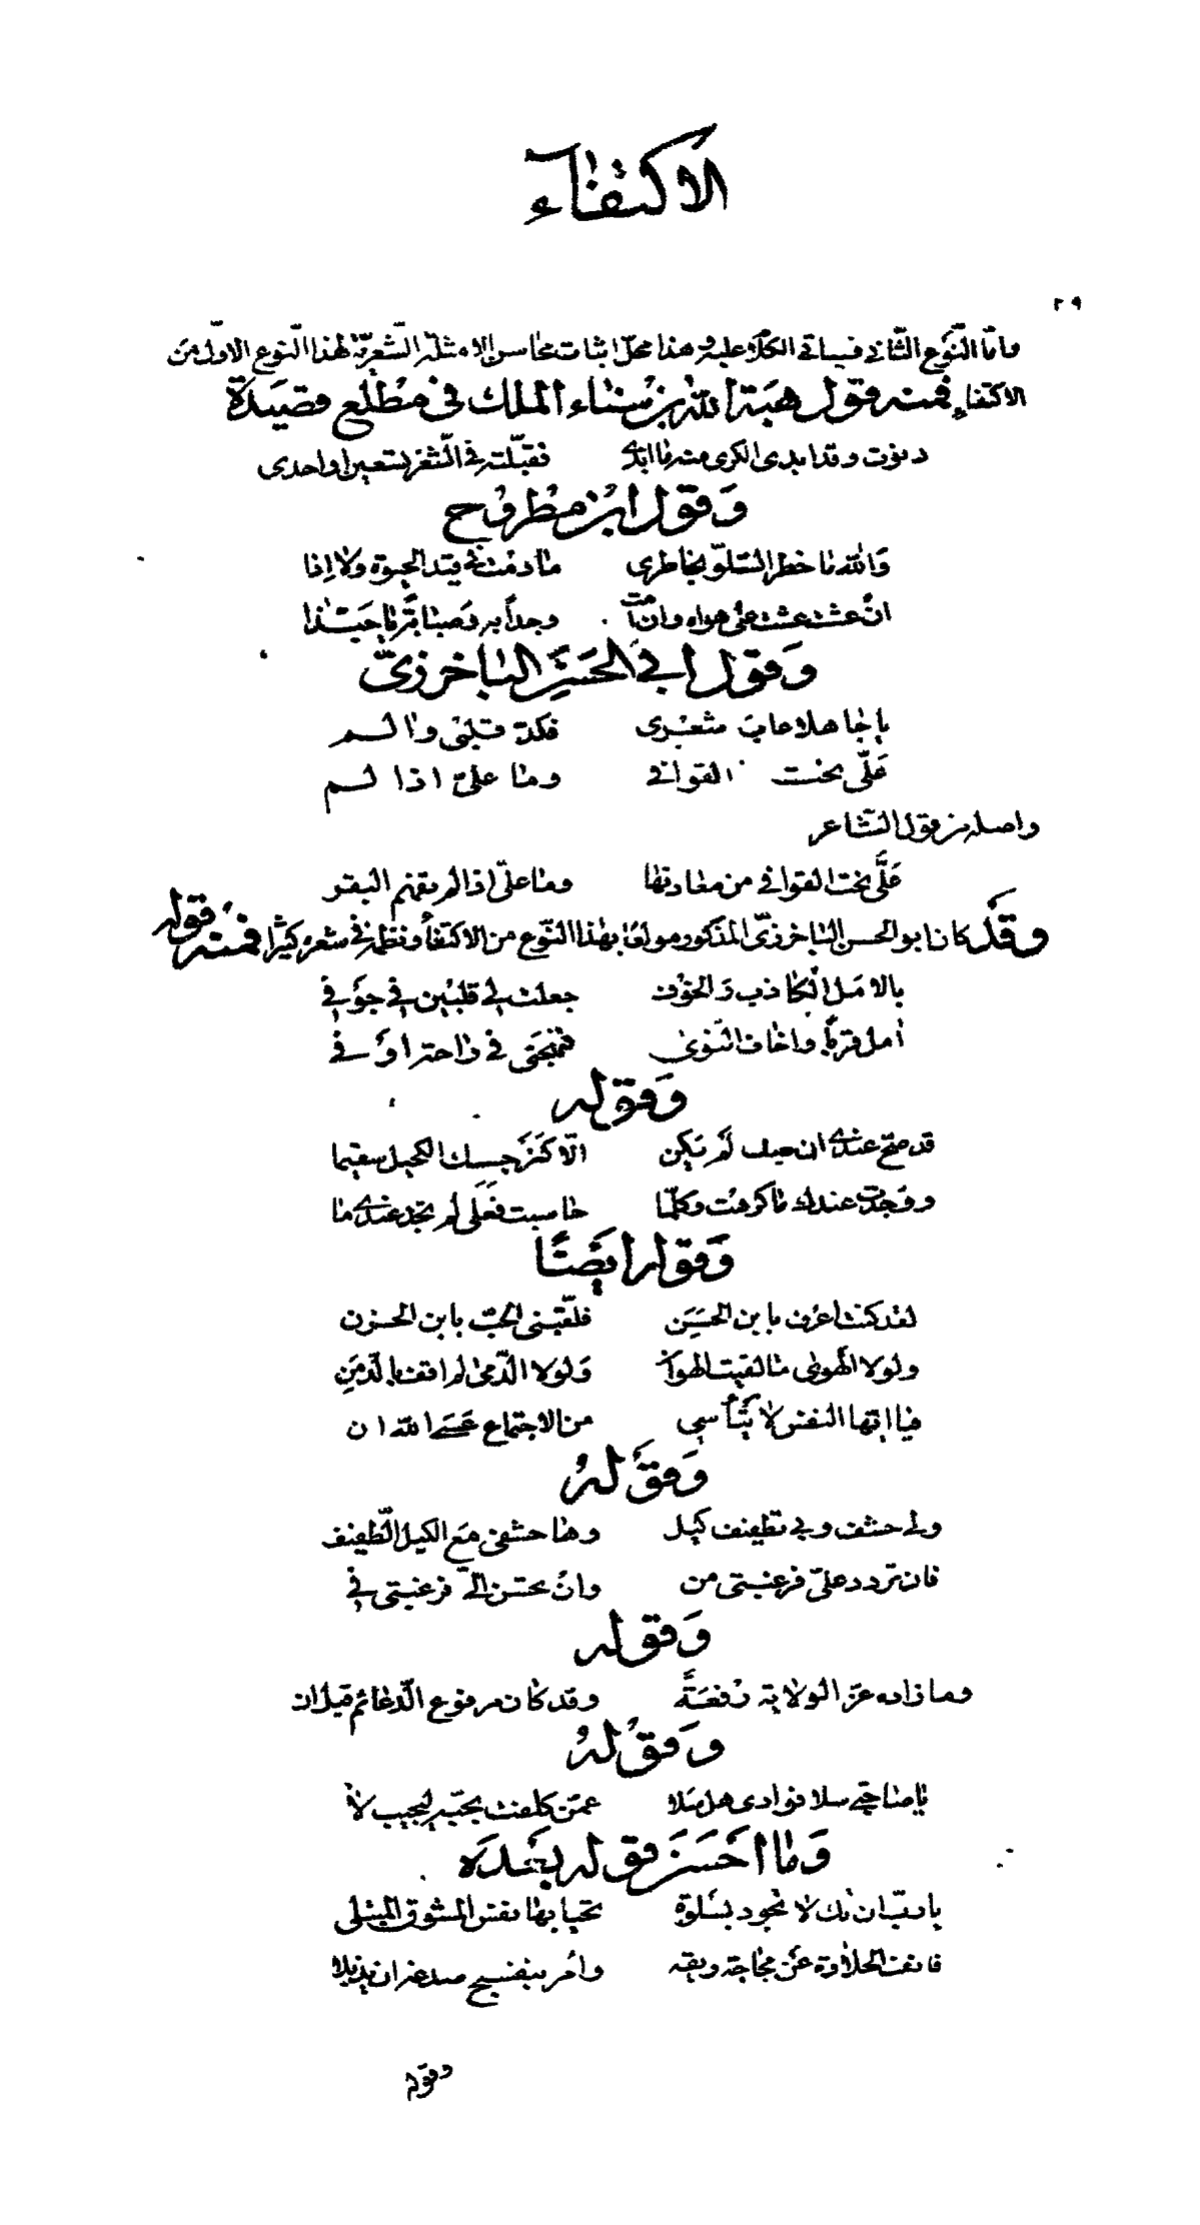 الاكتفاء
٢٩
وأمّا النّوع الثّاني فسيأتي الكلام عليه وهذا محلّ اثبات محاسن الامثلة الشّعريّة لهذا النّوع الاوّل من
الاكتفاء فمنه قول هبة الله بن سناء الملك في مطلع قصيدة
دنوت وقد ابدى الكرى منه ما ابدى فقبّلته في الثّغر تسعين او احدى
وقول ابن مطروح
والله ما خطر السّلوّ بخاطري ما دمت في قيد الحيوة ولا اذا
ان عشت عشت على هواه وان أمت وجداً به وصبابة يا حبّذا
وقول ابي الحسن الباخرزيّ
يا جاهلا عاب شعري فكدّ قلبي وآلم
عليّ نحت القوافي وما عليّ اذا لم
واصله من قول الشاعر
عليّ نحت القوافي من معادنها وما عليّ اذا لم يفهم البقر
وقد كان ابو الحسن الباخرزيّ المذكور مولعًا بهذا النّوع من الاكتفاء ونظمه في شعره كثيرًا فمنه قوله
بالامل الكاذب والخوف جعلت لي قلبين في جوفي
أمل قربًا واخاف النّوى فمهجتي في ذا احتراق وفي
وقوله
قد صحّ عندي ان حبك لم يكن الّا كنرجسك الكحيل سقيما
ووجدت عندك ما كرهت وكلّما حاسبت فعلي لم تجد عندي ما
وقوله ايضًا
لقد كنت اعرف بابن الحسين فلقّبني الحبّ بابن الحزن
ولولا الهوى ما لقيت الهوان ولولا الدّمى لم اقف بالدّمن
فيا ايّتها النفس لا تيأسي من الاجتماع عسى الله ان
وقوله
ولي حشف وبي تطفيف كيل وها حشفي مع الكيل الطّفيف
فان تردد عليّ فرغبتي من وان تحسن اليّ فرغبتي في
وقوله
وما زاده عزّ الولاية رفعةً وقد كان مرفوع الدّعائم قبل ان
وقوله
يا صاحبي سلا فؤادي هل سلا عمّن كلفت بحبّه ليجيب لا
وما احسن قوله بعده
يا ربّ ان يك لا تجود بسلوة تحيا بها نفس المشوق المبتلى
فانف الحلاوة عن مجاجة ريقه وأمر بنفسج صدغه ان يذبلا
وقوله